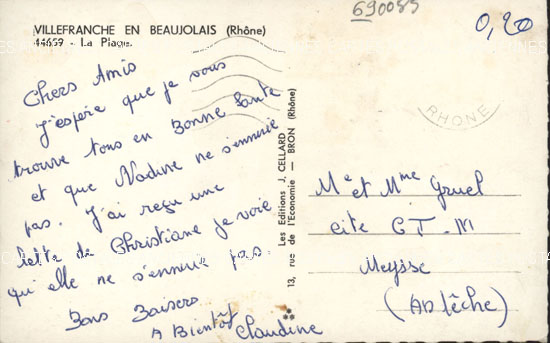 690085
0,20
VILLEFRANCHE EN BEAUJOLAIS (Rhône)
44659 - La Plage
Chers Amis
J'espère que je vous
trouve tous en Bonne Sante
et que Nadine ne s'ennuie
pas. J'ai reçu une
lette de Christiane je voie
qu'elle ne s'ennuie pas
Bons Baisers
A Bientôt Claudine
Les Editions J. CELLARD
13, rue de l'Economie — BRON (Rhône)
RHONE
Me et Mme Gruel
cite C T. M
Meysse
(Ardêche)